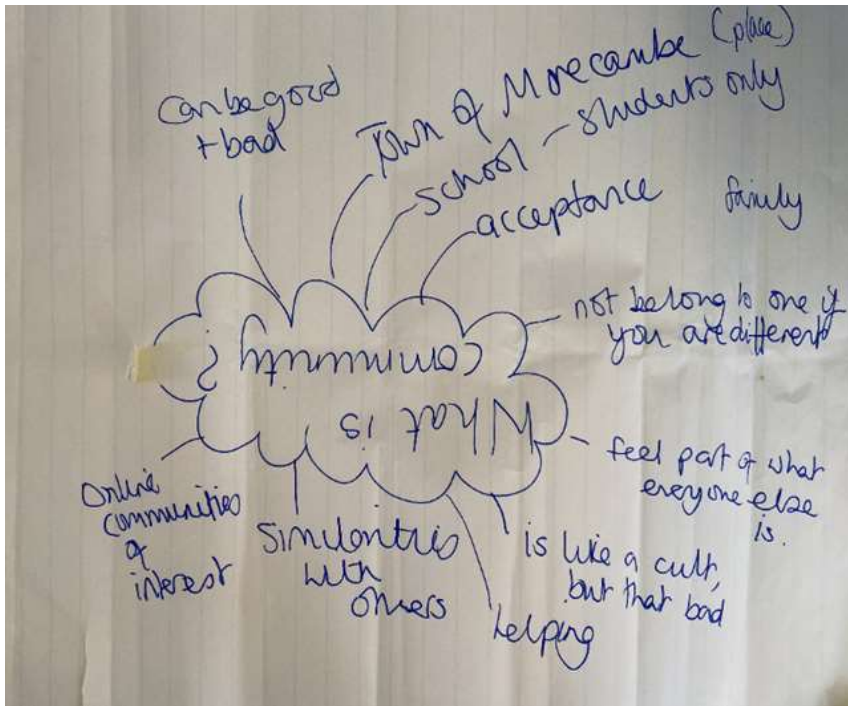 What is
community?
can be good
+ bad
Town of Morecambe (place)
school - students only
acceptance
family
not belong to one if
you are different
feel part of what
everyone else
is.
is like a cult,
but that bad
helping
Similarities
with
others
Online
communities
of
interest